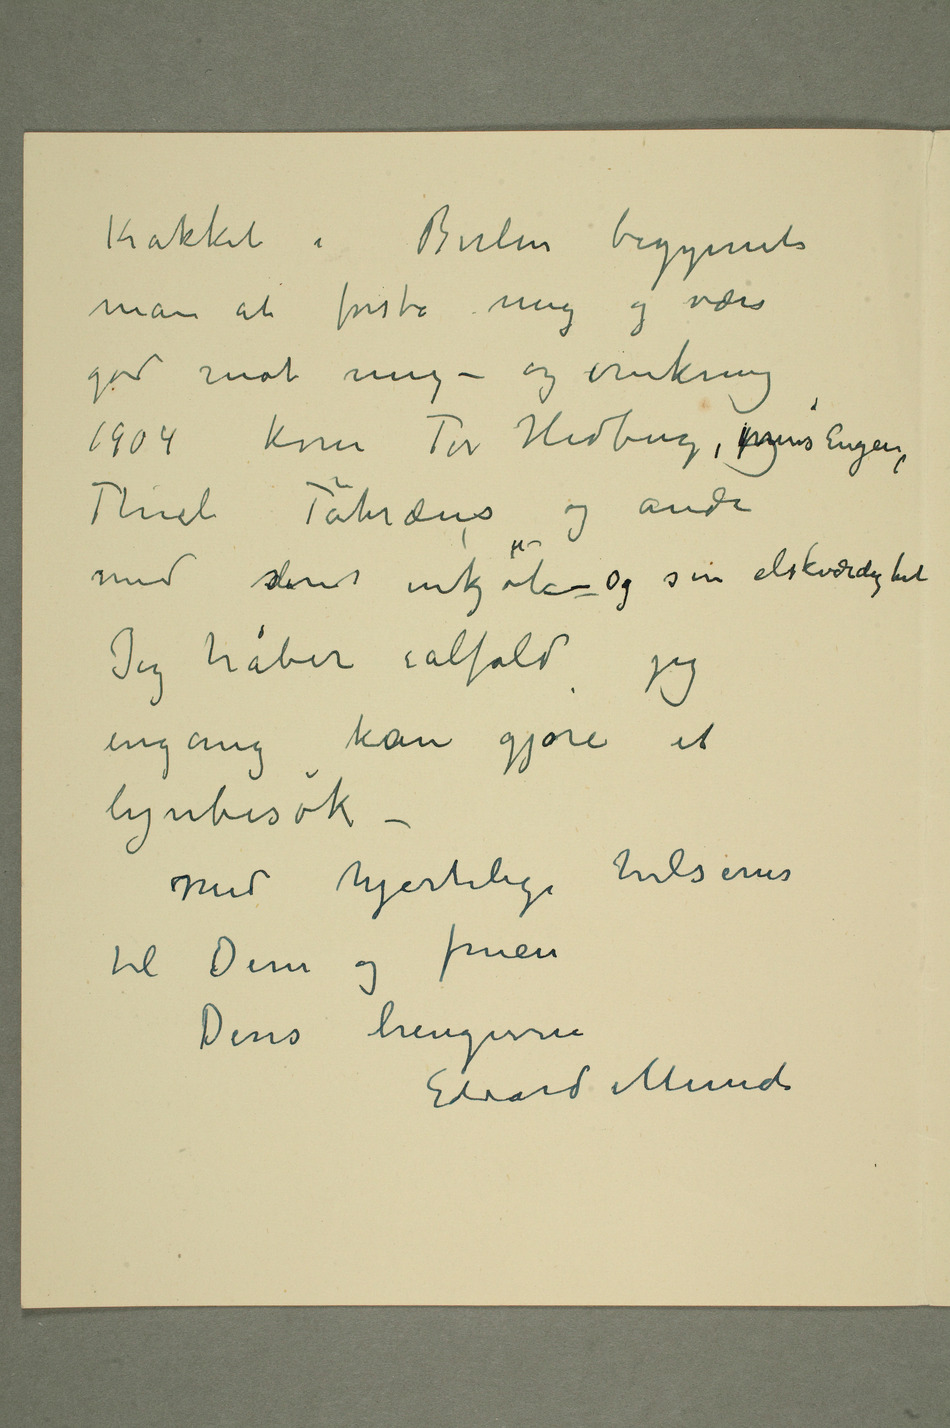 Krakket i Berlin begynnte
man at forstå mig og være
god mot mig – og omkring
1904 kom Tor Hedberg, prins Eugen,
Thiel Tåhræus og andre
med sine inkjöb – og sin elskværdighet
Jeg håber ialfald jeg
engang kan gjøre et
lynbesök –
Med hjertelige hilsener
til Dem og fruen
Deres hengivne
Edvard Munch